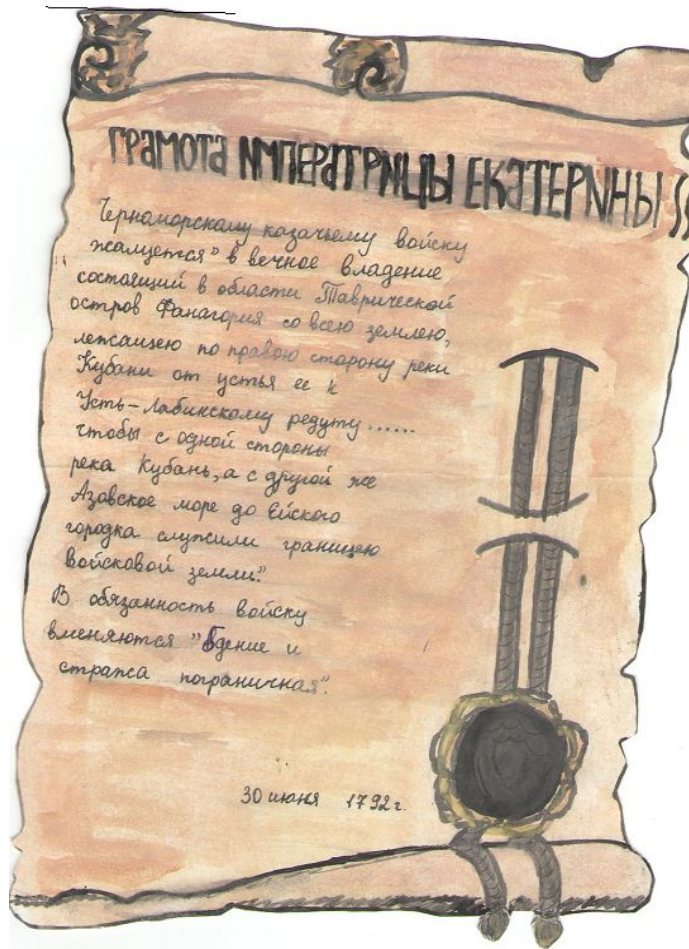 ГРАМОТА ИМПЕРАТРИЦЫ ЕКАТЕРИНЫ II
Черноморскому казачьему войску
"жалуется" в вечное владение
состоящий в области Таврической
остров Фанагория со всею землею,
лежащею по правою сторону реки
Кубани от устья ее к
Усть-Лабинскому редуту......
чтобы с одной стороны
река Кубань, а с другой же
Азовское море до Ейского
городка служили границею
войсковой земли."
В обязанность войску
вменяются "бдение и
стража пограничная".
30 июня 1792 г.